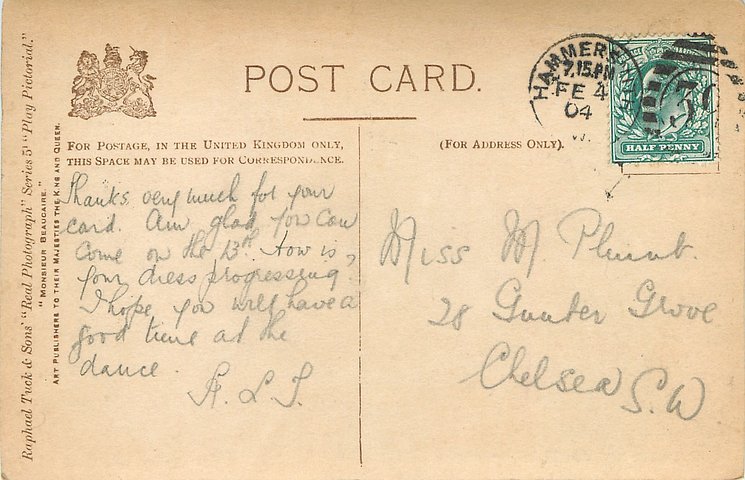 Raphael Tuck & Sons' "Real Photograph" Series 5' "Play Pictorial."
"MONSIEUR BEAUCAIRE."
ART PUBLISHERS TO THEIR MAJESTIES THE KING AND QUEEN.
POST CARD.
FOR POSTAGE, IN THE UNITED KINGDOM ONLY,
THIS SPACE MAY BE USED FOR CORRESPONDENCE.
(FOR ADDRESS ONLY).
HAMMERSMITH
7.15.PM
FE 4
04
W.
HALF PENNY
Thanks very much for your
card. Am glad you can
come on the 13th. How is
your dress progressing?
I hope you will have a
good time at the
dance.
Miss M
28 Gunter Grove
Chelsea S.W